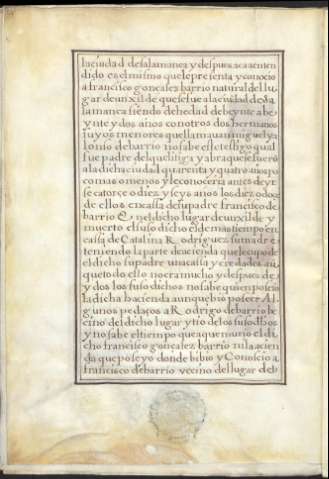 la ciudad desalamanca y despues aca a enten
dido es el mismo que lepresenta y conoçio
a francisco gonçalez barrio natural del lu
gar de unxil de que se fue ala ciudad de sa
lamanca siendo de hedad de beynte a be
ynte y dos años con otros dos hermanos
suyos menores que llamauan miguel y a
lonso de barrio no sabe este testigo qual
fue padre del que litiga y abra que se fuerō
ala dicha ciudad quarenta y quatro años po
co mas o menos y le conoçeria antes de yr
se catorçe o diez y seys años los diez o doçe
de ellos en cassa de su padre francisco de
barrio en el dicho lugar de unxil de y
muerto el suso dicho el demas tiempo en
cassa de Catalina Rodriguez su madre
teniendo la parte de haçienda que le cupo de
el dicho su padre una cassa y eredades au
que todo ello no era mucho y despues de
y dos los suso dichos no sabe quien poseio
la dicha haçienda aunque bio poseer Al
gunos pedaços a Rodrigo de barrio be
çino del dicho lugar y tio de los suso dhos
y no sabe el tiempo que aquemurio el di
cho francisco gonçalez barrio ni la açien
da que poseyo donde bibio y Conosçio a
francisco de barrio vecino del lugar de b